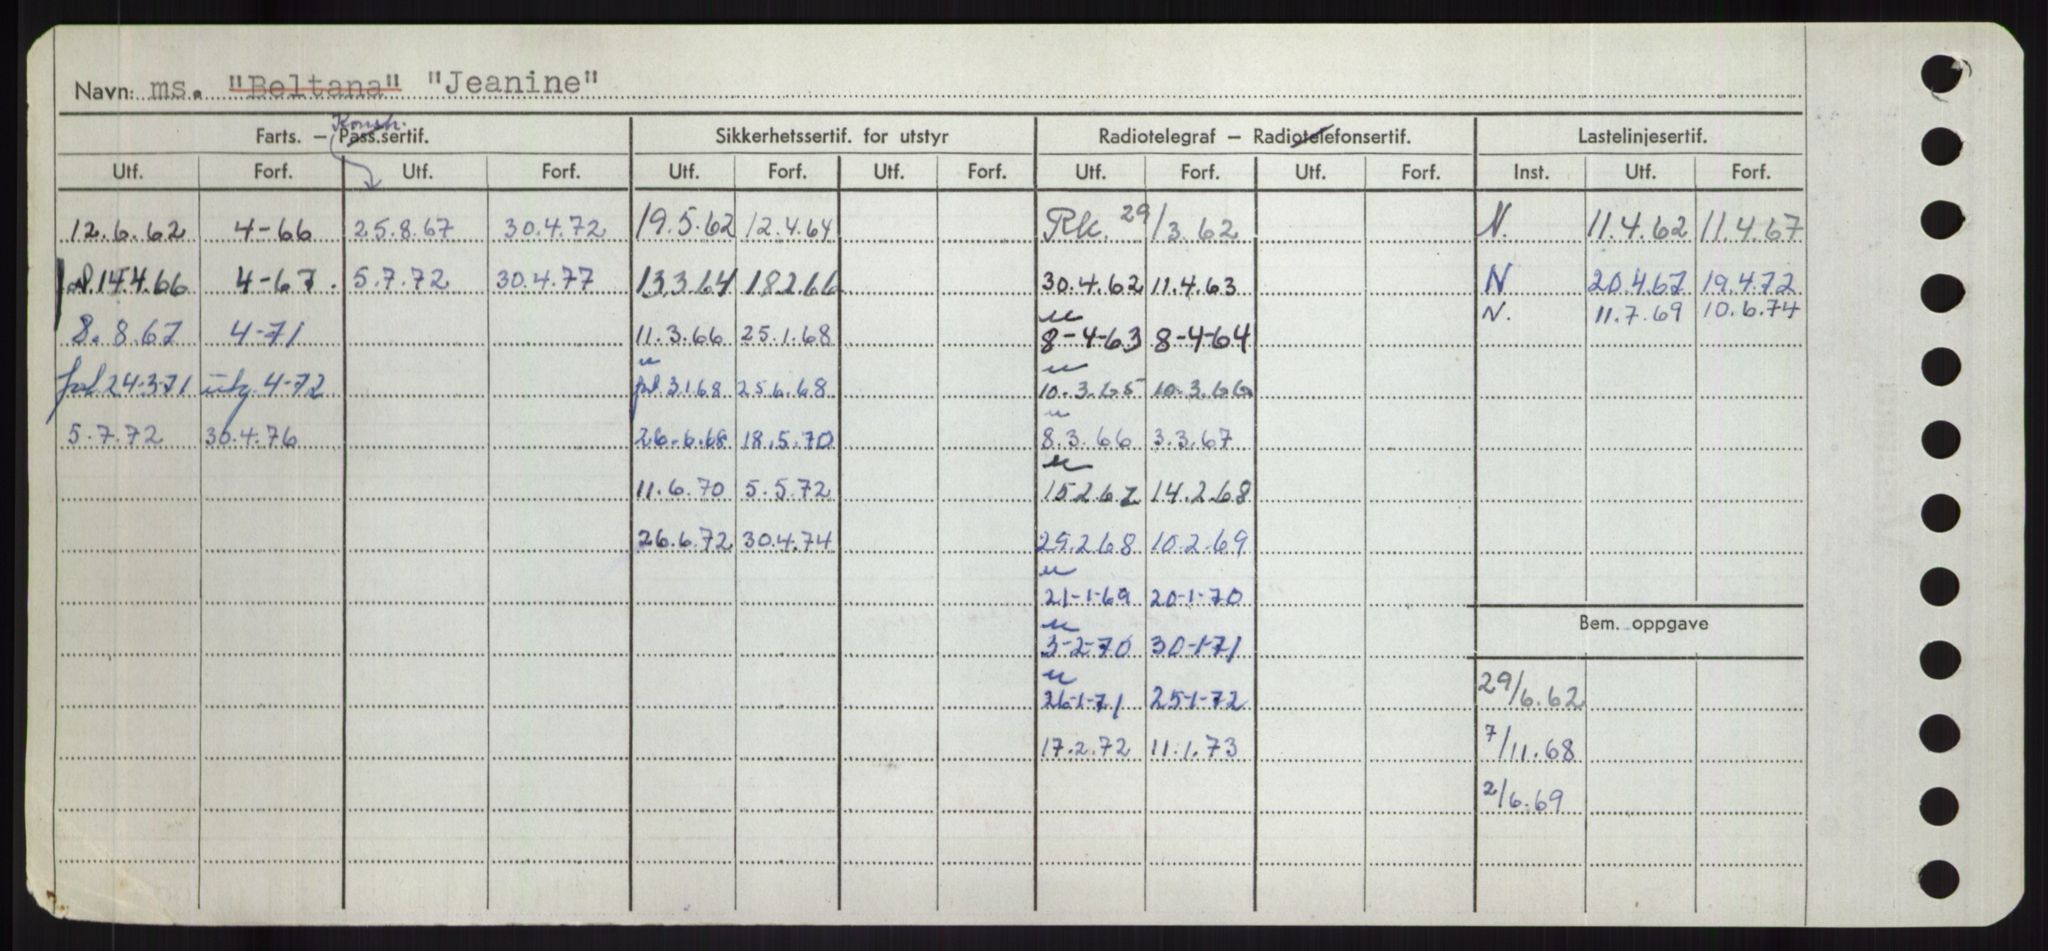 Navn: ms. "Beltana" "Jeanine"
Farts. – Pass.sertif. Konstr. Sikkerhetssertif. for utstyr Radiotelegraf – Radiotelefonsertif. Lastelinjesertif.
Utf. Forf. Utf. Forf. Utf. Forf. Utf. Forf. Utf. Forf. Utf. Forf. Inst. Utf. Forf.
12.6.62 4-66 25.8.67 30.4.72 19.5.62 12.4.64 Rk. 29/3.62 N. 11.4.62 11.4.67
14.4.66 4-67. 5.7.72 30.4.77 13.3.64 18.2.66 30.4.62 11.4.63 N 20.4.67 19.4.72
N. 11.7.69 10.6.74
8.8.67 4-71 11.3.66 25.1.68 8-4-63 8-4-64
fol 24.3.71 utg. 4-72 fol 3.1.68 25.6.68 10.3.65 10.3.66
5.7.72 30.4.76 26.6.68 18.5.70 8.3.66 3.3.67
11.6.70 5.5.72 15.2.67 14.2.68
26.6.72 30.4.74 29.2.68 10.2.69
21-1-69 20-1-70
Bem. oppgave
3-2-70 30-1-71
26-1-71 25-1-72 29/6.62
17.2.72 11.1.73 7/11.68
2/6.69